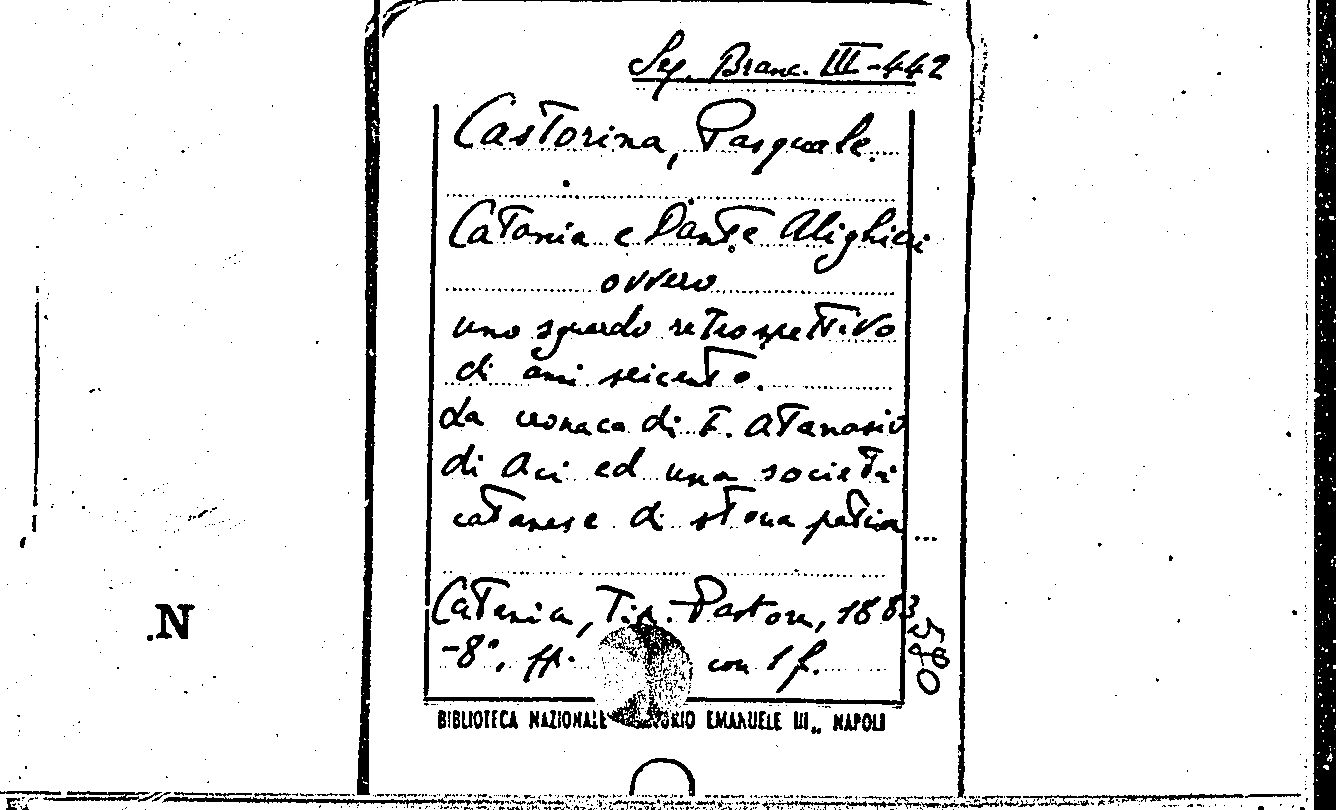 Seg. Branc. III-442
Castorina, Pasquale.
Catania e Dante Alighieri
ovvero
uno sguardo retrospettivo
di anni seicento.
La cronaca di F. Atanasio
di Aci ed una società
catanese di storia patria...
Catania, Tip. Pastore, 1883
-8°. pp. con 1 f.
580
BIBLIOTECA NAZIONALE EMANUELE III„ NAPOLI
.N